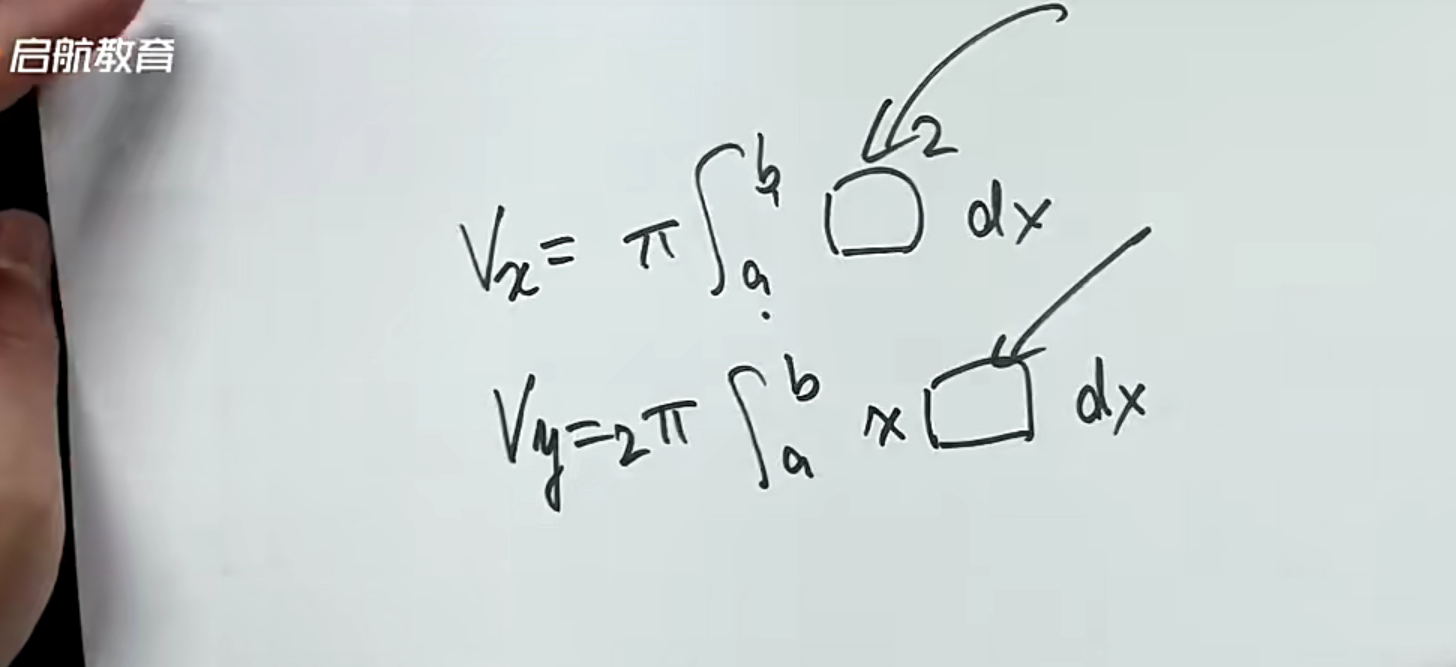 启航教育
Vx = π ∫_a^b □² dx
Vy = 2π ∫_a^b x □ dx